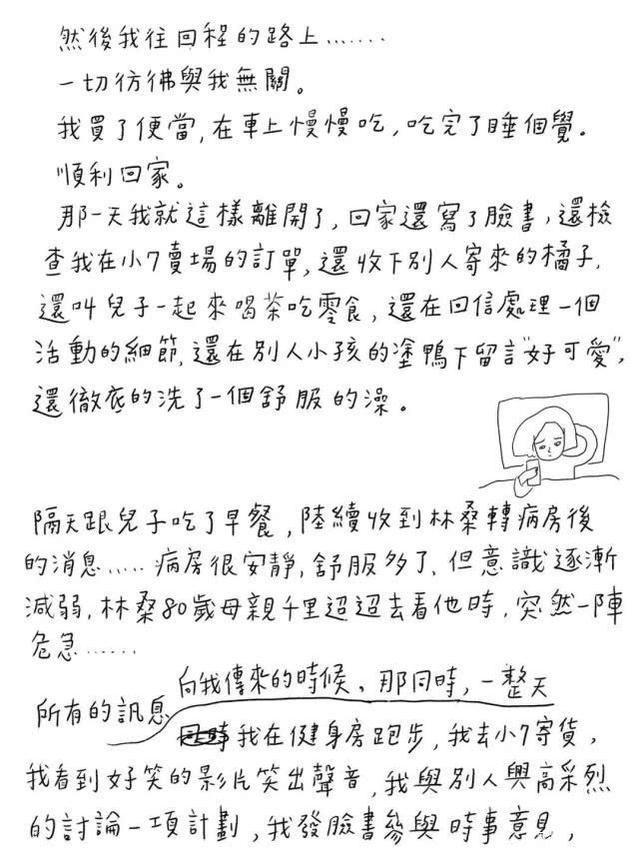 然後我往回程的路上……
一切彷彿與我無關。
我買了便當,在車上慢慢吃,吃完了睡個覺。
順利回家。
那一天我就這樣離開了,回家還寫了臉書,還檢
查我在小7賣場的訂單,還收下別人寄來的橘子,
還叫兒子一起來喝茶吃零食,還在回信處理一個
活動的細節,還在別人小孩的塗鴨下留言"好可愛",
還徹底的洗了一個舒服的澡。
隔天跟兒子吃了早餐,陸續收到林桑轉病房後
的消息……病房很安靜,舒服多了、但意識逐漸
減弱,林桑80歲母親千里迢迢去看他時,突然一陣
危急……
所有的訊息向我傳來的時候、那同時,一整天
我在健身房跑步,我去小7寄貨,
我看到好笑的影片笑出聲音,我與別人興高采烈
的討論一項計劃,我發臉書參與時事意見,